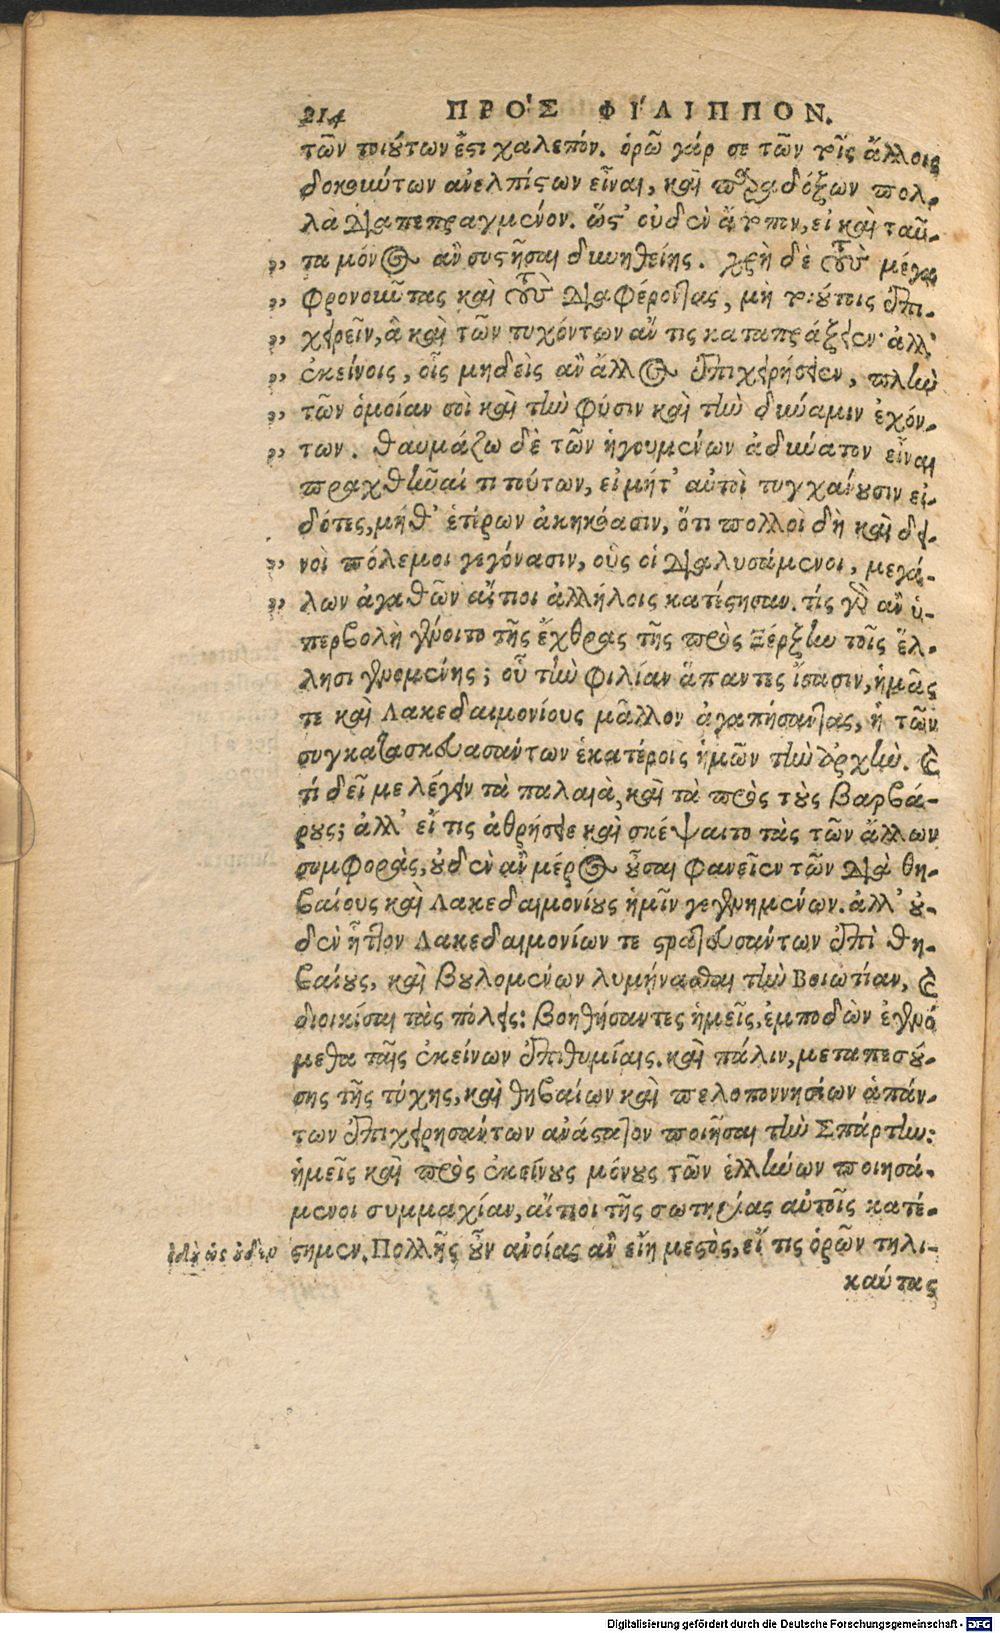 214 ΠΡΟ'Σ ΦΙ'ΛΙΠΠΟΝ.
τῶν τοιούτων ἐστὶ χαλεπόν. ὁρῶ γάρ σε τῶν τοῖς ἄλλοις
δοκούντων ἀνελπίστων εἶναι, καὶ παραδόξων πολ-
λὰ διαπεπραγμένον. ὥστ' οὐδὲν ἄτοπον, εἰ καὶ ταῦ-
τα μόνος ἂν συστῆσαι δυνηθείης. χρὴ δὲ τοὺς μέγα
φρονοῦντας καὶ τοὺς διαφέροντας, μὴ τοιούτοις ἐπι-
χειρεῖν, ἃ καὶ τῶν τυχόντων ἄν τις καταπράξειεν· ἀλλ'
ἐκείνοις, οἷς μηδεὶς ἂν ἄλλος ἐπιχειρήσειεν, πλὴν
τῶν ὁμοίαν σοὶ καὶ τὴν φύσιν καὶ τὴν δύναμιν ἐχόν-
των. θαυμάζω δὲ τῶν ἡγουμένων ἀδύνατον εἶναι
πραχθῆναί τι τούτων, εἰ μήτ' αὐτοὶ τυγχάνουσιν εἰ-
δότες, μήθ' ἑτέρων ἀκηκόασιν, ὅτι πολλοὶ δὴ καὶ δει-
νοὶ πόλεμοι γεγόνασιν, οὓς οἱ διαλυσάμενοι, μεγά-
λων ἀγαθῶν αἴτιοι ἀλλήλοις κατέστησαν. τίς γὰρ ἂν ὑ-
περβολὴ γένοιτο τῆς ἔχθρας τῆς πρὸς Ξέρξην τοῖς ἕλ-
λησι γενομένης; οὗ τὴν φιλίαν ἅπαντες ἴσασιν, ἡμᾶς
τε καὶ Λακεδαιμονίους μᾶλλον ἀγαπήσαντας, ἢ τῶν
συγκατασκευασάντων ἑκατέροις ἡμῶν τὴν ἀρχήν. καὶ
τί δεῖ με λέγειν τὰ παλαιὰ, καὶ τὰ πρὸς τοὺς βαρβά-
ρους; ἀλλ' εἴ τις ἀθρήσειε καὶ σκέψαιτο τὰς τῶν ἄλλων
συμφορὰς, οὐδὲν ἂν μέρος οὖσαι φανεῖεν τῶν διὰ θη-
βαίους καὶ Λακεδαιμονίους ἡμῖν γεγενημένων. ἀλλ' οὐ-
δὲν ἧττον Λακεδαιμονίων τε στρατευσάντων ἐπὶ θη-
βαίους, καὶ βουλομένων λυμήνασθαι τὴν Βοιωτίαν, καὶ
διοικίσαι τὰς πόλεις: βοηθήσαντες ἡμεῖς, ἐμποδὼν ἐγενό
μεθα ταῖς ἐκείνων ἐπιθυμίαις. καὶ πάλιν, μεταπεσού-
σης τῆς τύχης, καὶ θηβαίων καὶ πελοποννησίων ἁπάν-
των ἐπιχειρησάντων ἀνάστατον ποιῆσαι τὴν Σπάρτην:
ἡμεῖς καὶ πρὸς ἐκείνους μόνους τῶν ἑλλήνων ποιησά-
μενοι συμμαχίαν, αἴτιοι τῆς σωτηρίας αὐτοῖς κατέ-
στημεν. Πολλῆς οὖν ἀνοίας ἂν εἴη μεστὸς, εἴ τις ὁρῶν τηλι-
καύτας
Digitalisierung gefördert durch die Deutsche Forschungsgemeinschaft - DFG